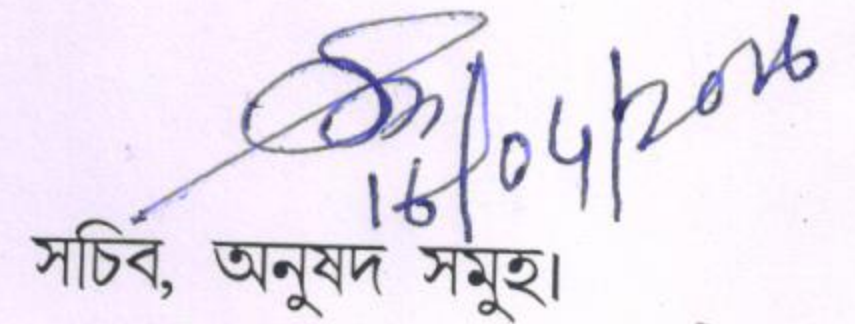 16/04/2026
সচিব, অনুষদ সমুহ।